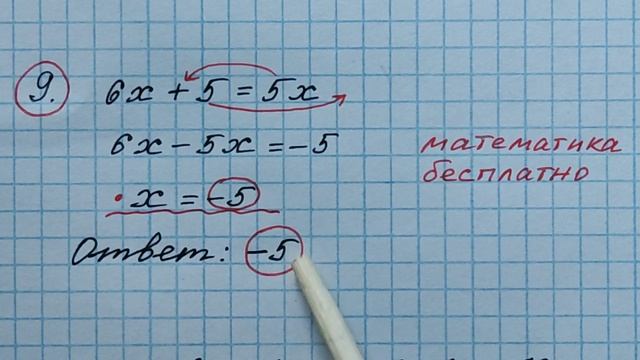 9. 6x + 5 = 5x
6x - 5x = -5
x = -5
Ответ: -5
математика
бесплатно